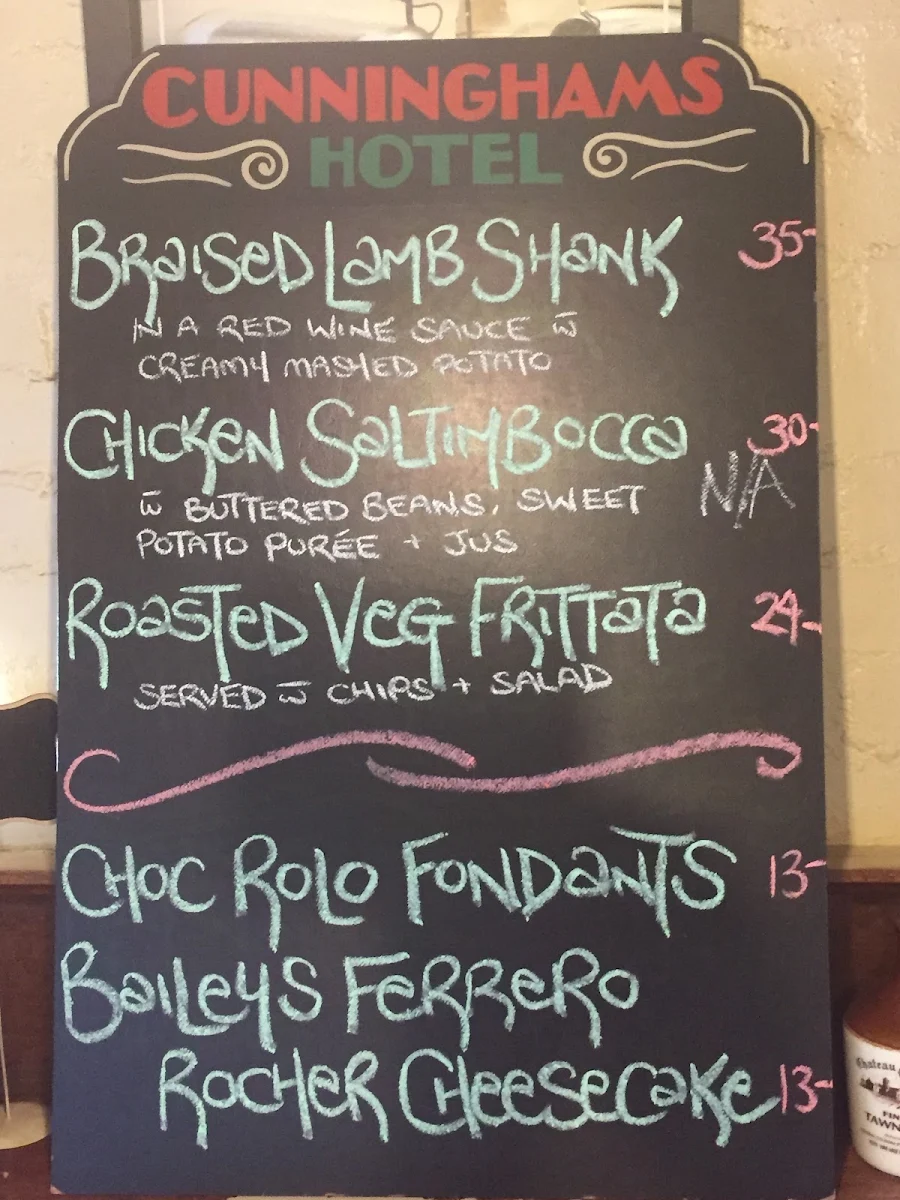 CUNNINGHAMS
HOTEL
BRaiSeD LaMB SHaNK 35-
IN A RED WINE SAUCE w̄
CREAMY MASHED POTATO
CHicKeN SaLTiMBocca 30-
N/A
w̄ BUTTERED BEANS, SWEET
POTATO PURÉE + JUS
RoaSTeD VeG FRiTTaTa 24-
SERVED w̄ CHIPS + SALAD
CHoc RoLo FoNDaNTS 13-
BaiLeyS FeRReRo
RocHeR CHeeSecaKe 13-
Chateau
FIN
TAWN